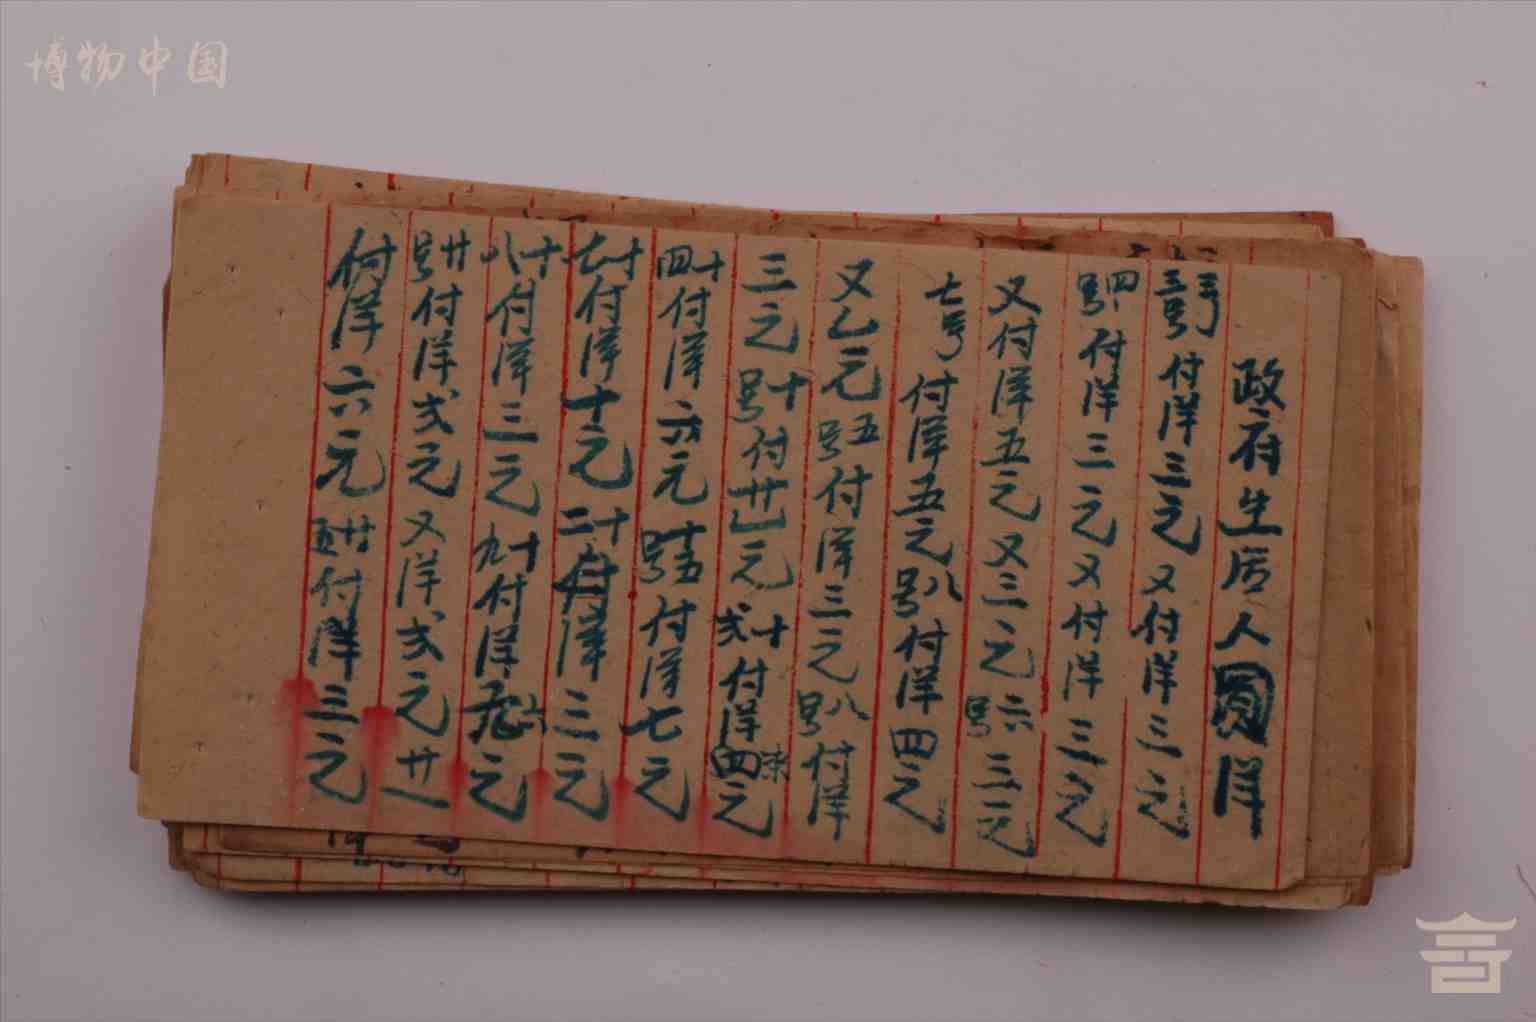 博物中国
政府生活人圆洋
三号付洋三元又付洋三元
四号付洋三元又付洋三元
又付洋五元又三元六号三元
七号付洋五元八号付洋四元
又乙元五号付洋三元八号付洋
三元十号付廿乙元十弍付洋四元
十四付洋六元十五号付洋七元
十七付洋十元二十付洋三元
十八付洋三元十九付洋六元
廿号付洋弍元又洋弍元廿一
付洋六元廿五付洋三元